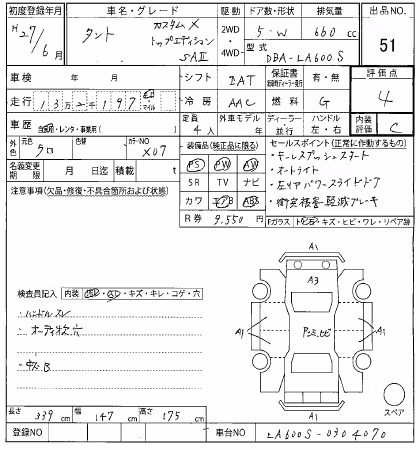 初度登録年月 車名・グレード 駆動 ドア数・形状 排気量 出品NO.
H27/6月 タント カスタムX トップエディション SAⅡ 2WD・4WD 5-W 660cc 51
型式 DBA-LA600S
車検 年 月 シフト IAT 保証書 有・無 評価点 4
走行 13万2千197 マイル 冷房 AAC 燃料 G
車歴 自家用・レンタ・事業用( ) 定員 4人 外車モデル 年 ディーラー 並行 ハンドル 左・右 内装評価 C
外色 元色 クロ 色替 カラーNO X07
装備品(純正品に限る) セールスポイント(正常に作動するもの)
名義変更期限 月 日迄 積載 t
PS PW AW ・モールプッシュスタート
SR TV ナビ ・オートライト
注意事項(欠品・修復・不具合箇所および状態)
カワ エアB ABS ・左リアパワースライドドア
R券 9,550円 ・衝突被害軽減ブレーキ
Fガラス トビ石・キズ・ヒビ・ワレ・リペア跡
検査員記入 内装 ・キズ・キレ・コゲ・穴
・ハンドルスレ
・オーディオ穴
・内B
A1
A3
A1
A1
A1
スペア
長さ 339cm 幅 147cm 高さ 175cm
登録NO 車台NO LA600S-0304070